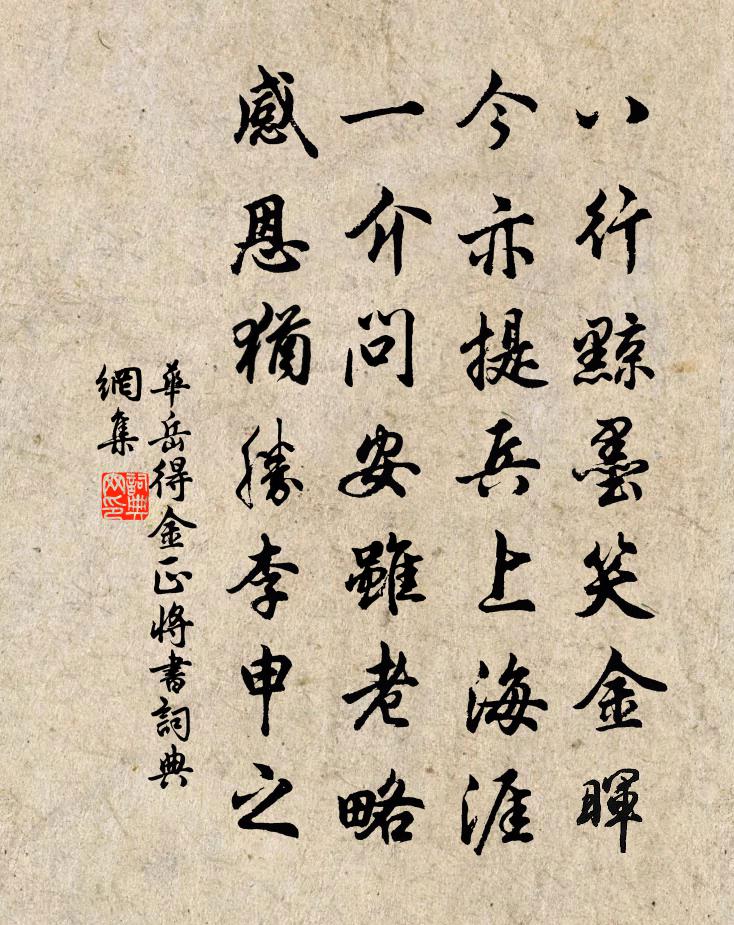 八行黥墨笑金暉
今亦提兵上海涯
一介問安雖老略
感恩猶勝李申之
華岳得金正將書詞典
網集
詞典網印